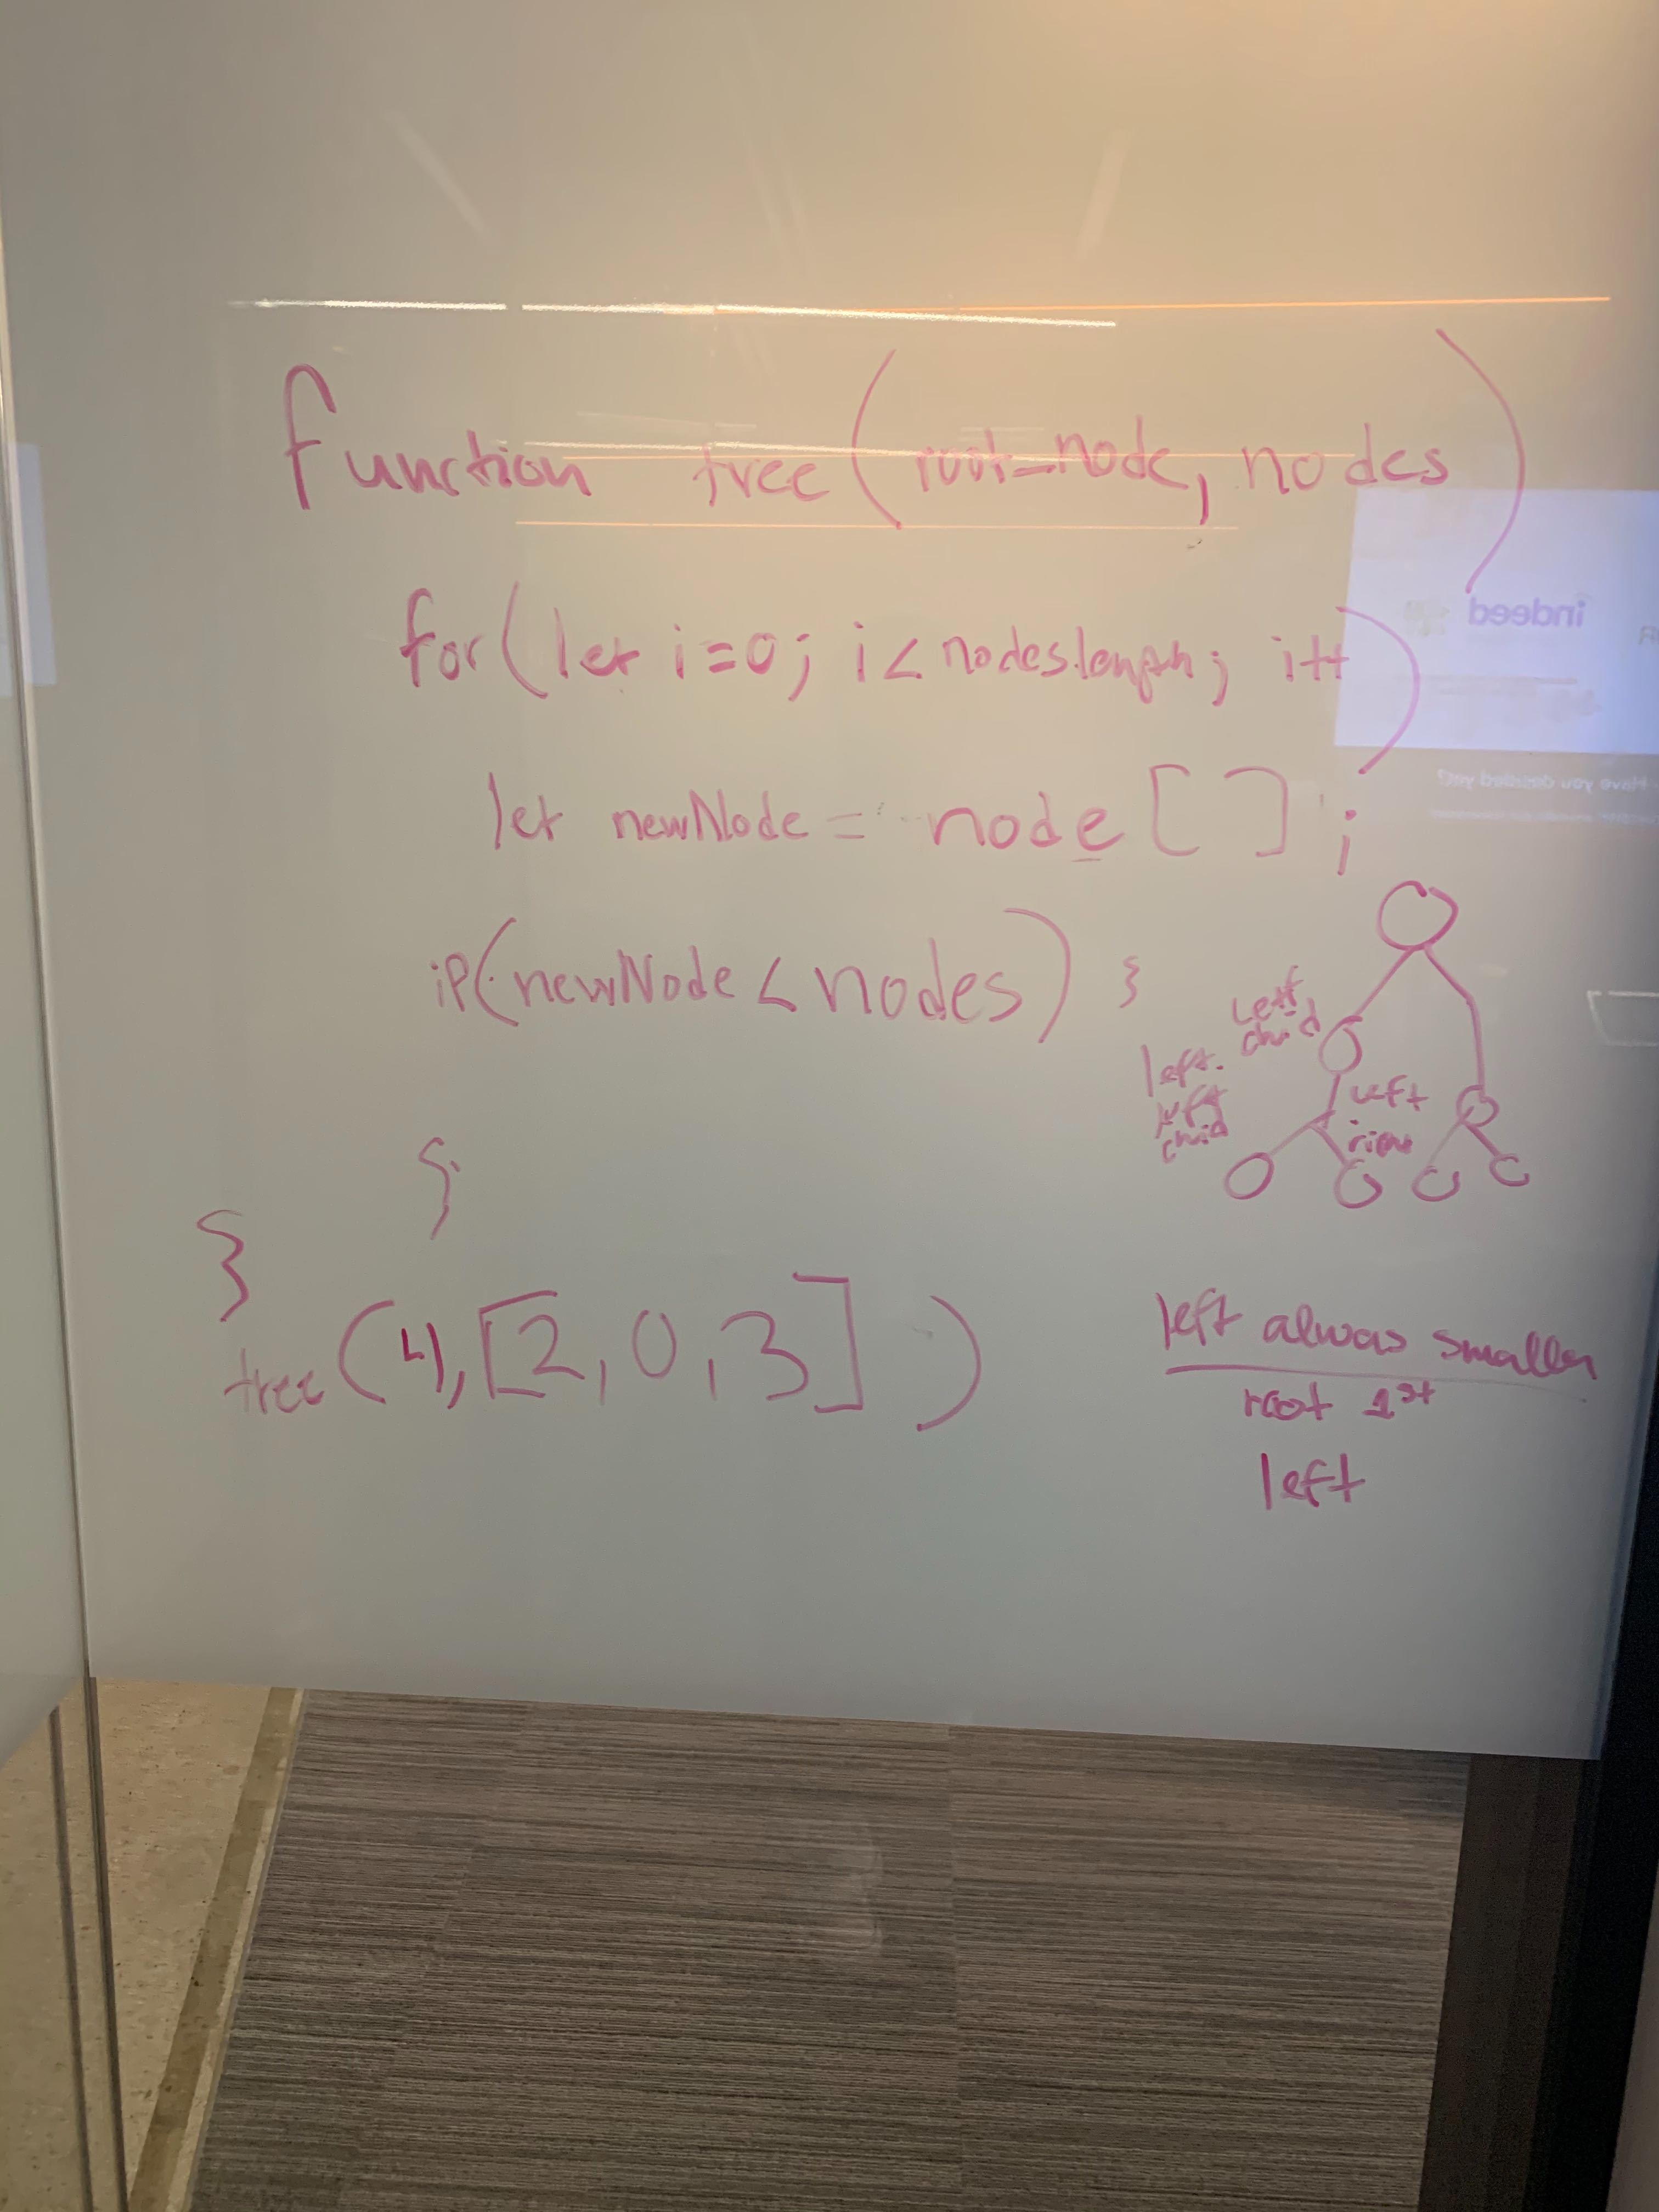 function tree(root_node, nodes)
for(let i=0; i<nodes.length; i++)
let newNode = node[];
if(newNode < nodes) }
}
}
tree(4, [2, 0, 3])
Left
child
left.
left
child
left
left alwas smaller
root 1st
left
indeed
Have you decided yet?